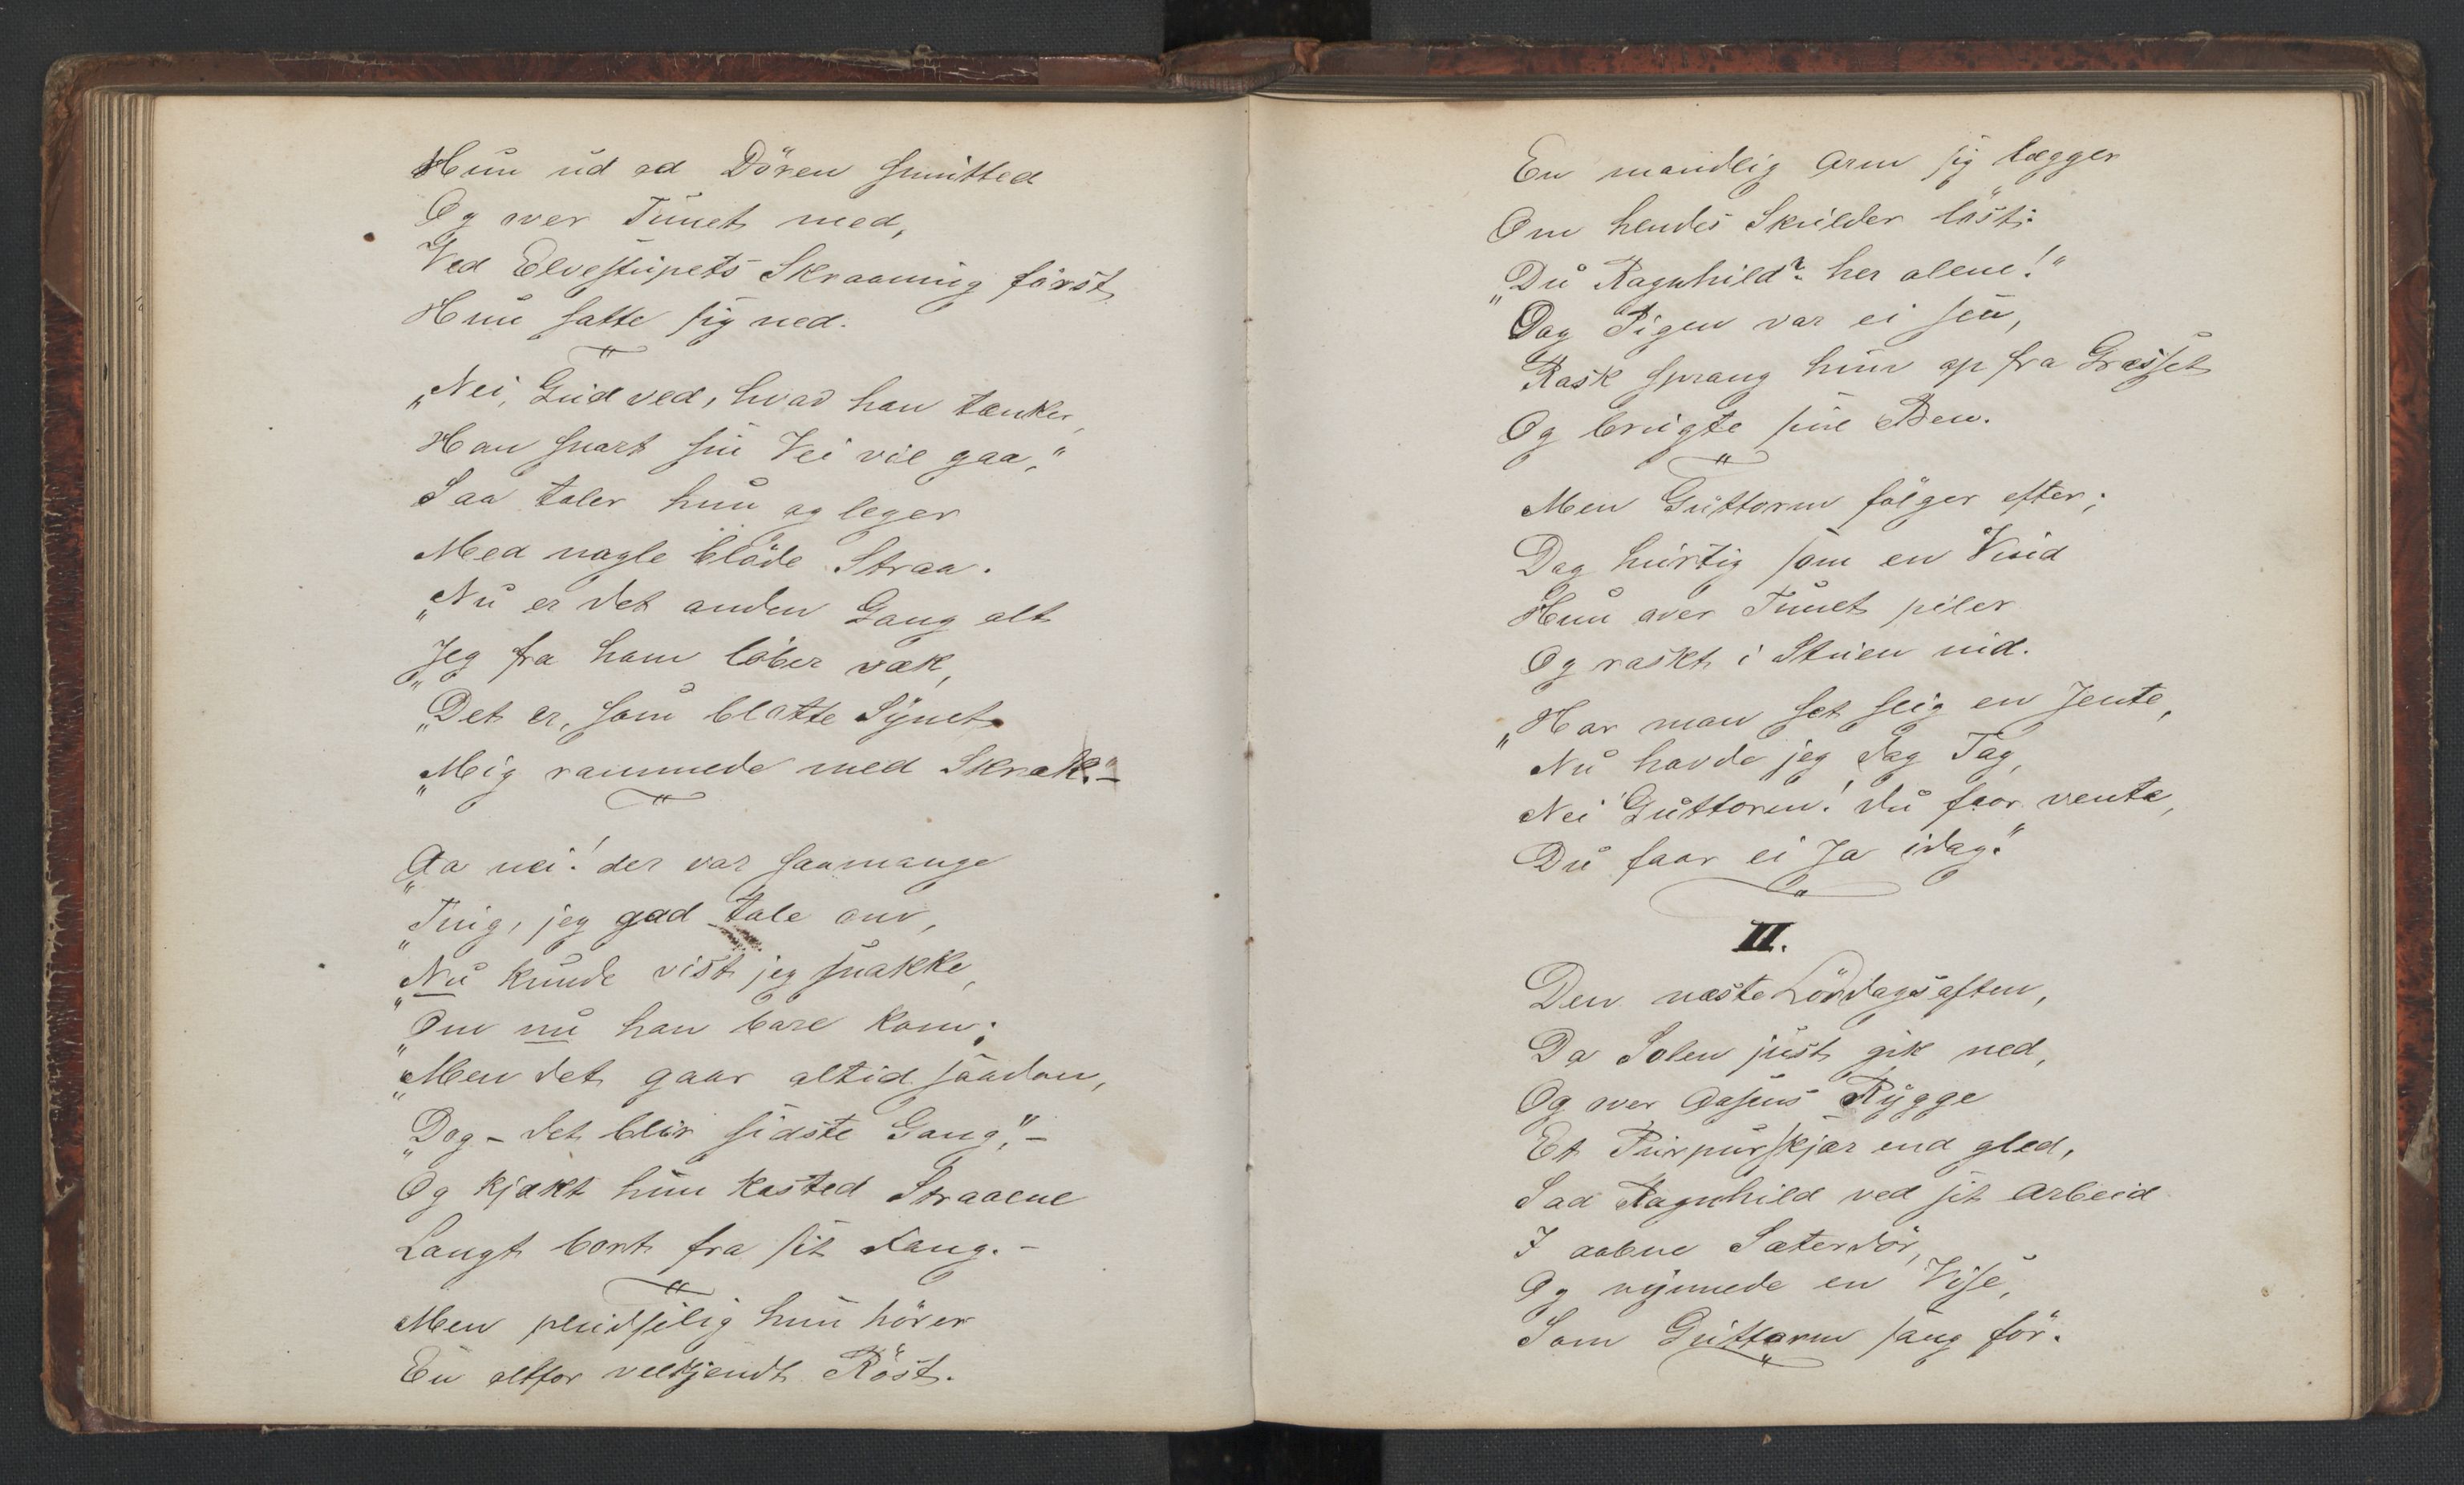 Hun ud ad Dören smutted
Og over Tunet med,
Ved Elvestupets Skraaning först
Hun satte sig ned.
„Nei, Gud ved, hvad han tænker,
Han snart sin Vei vil gaa,"
Saa taler hun og leger
Med nogle bløde Straa.
„Nu er det anden Gang alt
„Jeg fra ham löber væk,
„Det er, som blotte Synet
„Mig rammede med Skræk." –
„Aa nei! der var saamange
„Ting, jeg gad tale om,
„Nu kunde vist jeg snakke,
„Om nu han bare kom;
„Men det gaar altid saadan,
„Dog – det blir sidste Gang," –
Og kjækt hun kasted Straaene
Langt bort fra sit Fang. –
Men pludselig hun hörer
En altfor velkjendt Röst.
En mandlig Arm sig lægger
Om hendes Skulder löst:
„Du Ragnhild? her alene!"
Dog Pigen var ei sen,
Rask sprang hun op fra Græsset
Og brugte sine Ben.
Men Guttorm fölger efter;
Dog hurtig som en Vind
Hun over Tunet piler
Og raskt i Stuen ind.
„Har man set slig en Jente,
Nu havde jeg dog Tag,
Nei Guttorm! du faar vente,
Du faar ei Ja idag."
II.
Den næste Lördagsaften,
Da Solen just gik ned,
Og over Aasens Rygge
Et Purpurskjær end gled,
Sad Ragnhild ved sit Arbeid
I aabne Sæterdör,
Og nynnede en Vise,
Som Guttorm sang för.